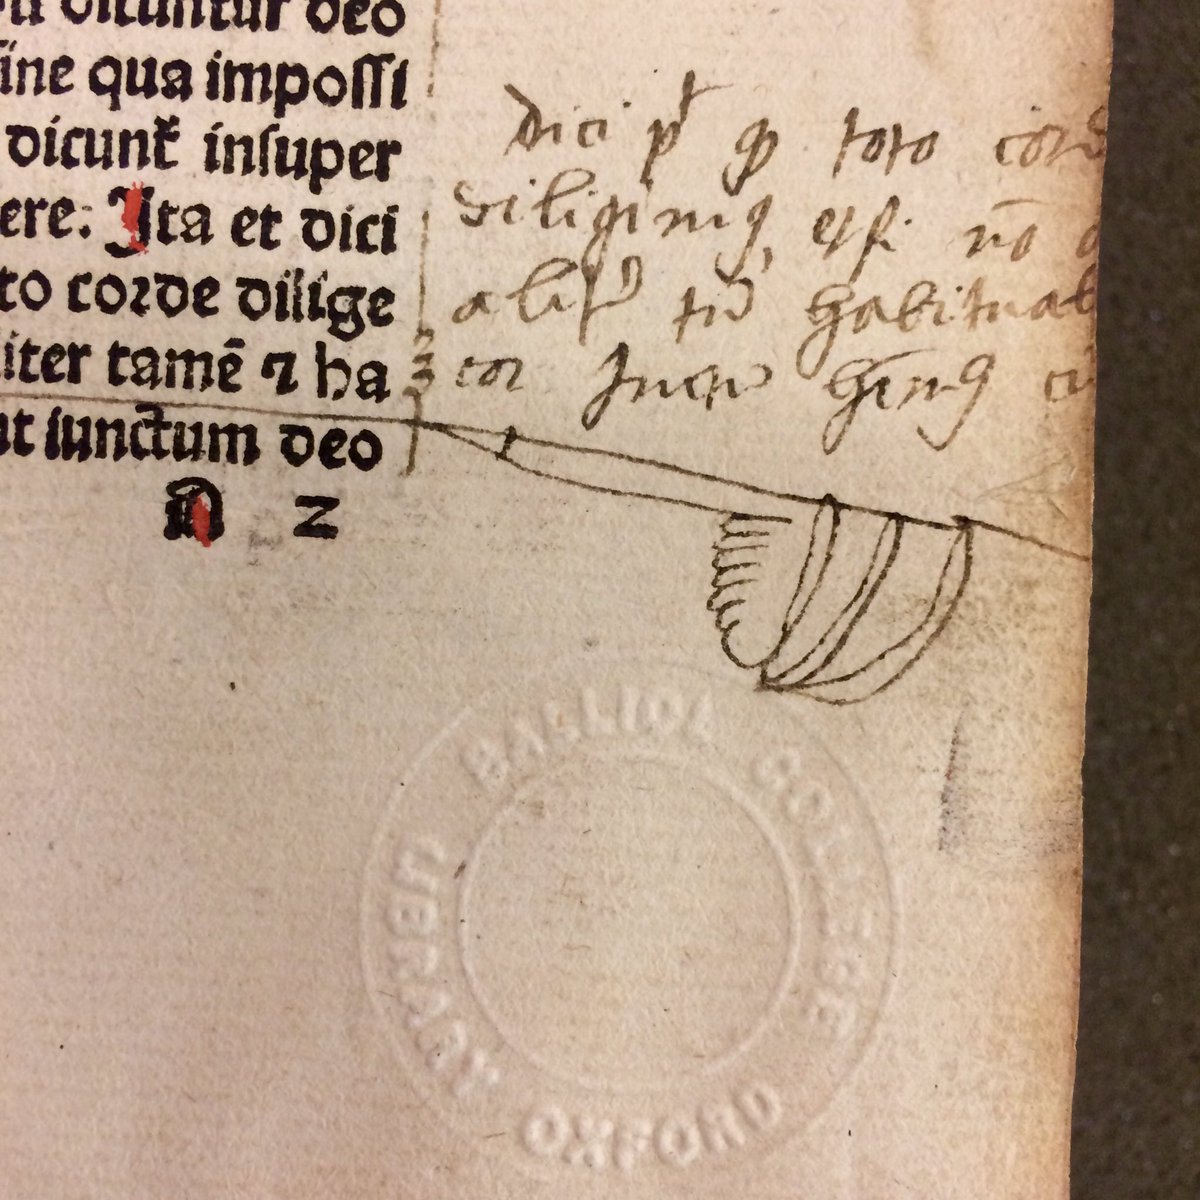 dicuntur deo
ſine qua impoſſi
dicunt᷑ inſuper
ere: Ita et dici
to corde dilige
liter tamē ⁊ ha
ut iunctum deo
A 2
dici pt ꝙ toto cord
diligimꝰ etsi nō
alit᷑ tn̄ habitual
cor
BALLIOL COLLEGE
OXFORD
LIBRARY